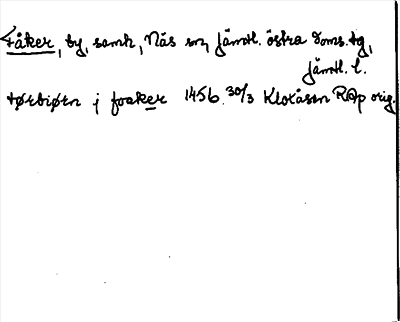 Fåker, by, samh, Näs sn, Jämtl. östra doms. tg,
Jämtl. l.
tørbiørn j foaker 1456 30/3 Kloxåsen RAp orig.